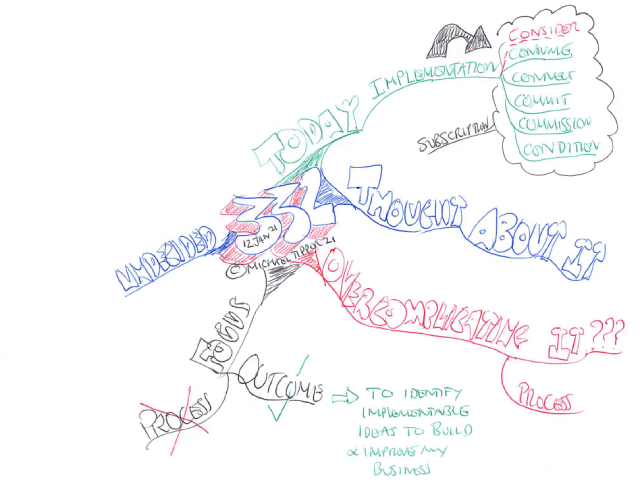 CONSIDER
CONSUME
CONNECT
COMMIT
COMMISSION
CONDITION
SUBSCRIPTION
IMPLEMENTATION
TODAY
332
12 JAN 21
THOUGHT ABOUT IT
UNDECIDED
OVERCOMPLICATING IT???
PROCESS
FOCUS
OUTCOME
PROCESS
⇨ TO IDENTIFY
IMPLEMENTABLE
IDEAS TO BUILD
& IMPROVE MY
BUSINESS